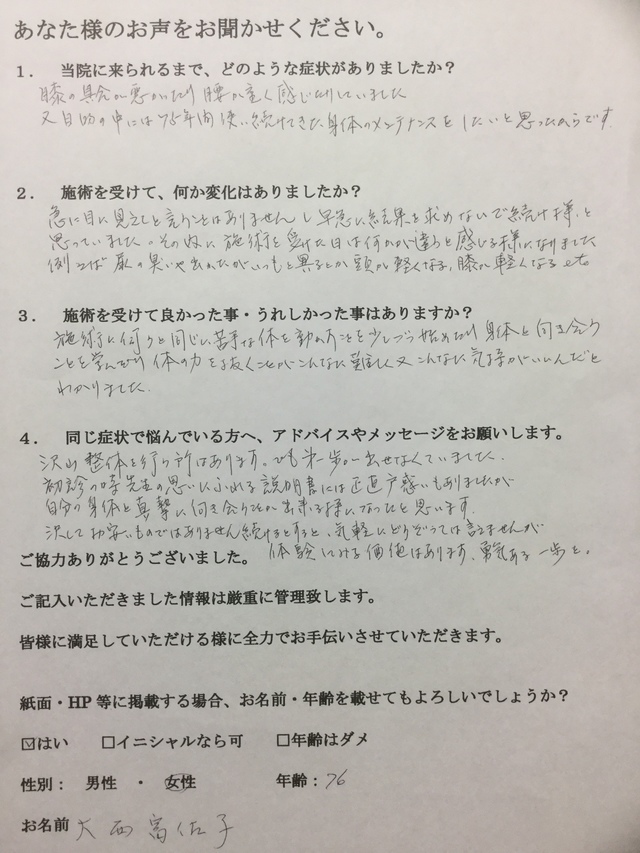 あなた様のお声をお聞かせください。
1． 当院に来られるまで、どのような症状がありましたか？
膝の具合が悪かったり腰が重く感じたりしていました
又目的の中には75年間使い続けてきた身体のメンテナンスをしたいと思ったからです
2． 施術を受けて、何か変化はありましたか？
急に目に見えてと言うことはありませんし早急に結果を求めないで続け様と
思っていました。その為に施術を受けた日は何かが違うと感じる様になりました
例えば尿の臭いや出かたがいつもと異るとか頭が軽くなる、膝が軽くなるetc
3． 施術を受けて良かった事・うれしかった事はありますか？
施術に伺うと同じに苦手な体を動かすことを少しづつ始めたり身体と向き合う
ことを学んだり体の力を抜くことがこんなに難しく又こんなに気持がいいんだと
わかりました
4． 同じ症状で悩んでいる方へ、アドバイスやメッセージをお願いします。
沢山整体を行う所はあります。でも第一歩が出せなくていました。
初診の時先生の思いにふれる説明書には正直戸惑いもありましたが
自分の身体と真摯に向き合うことが出来る様になったと思います。
決してお安いものではありません続けるとすると、気軽にどうぞとは言えませんが
体験してみる価値はあります、勇気ある一歩を。
ご協力ありがとうございました。
ご記入いただきました情報は厳重に管理致します。
皆様に満足していただける様に全力でお手伝いさせていただきます。
紙面・HP 等に掲載する場合、お名前・年齢を載せてもよろしいでしょうか？
☑はい □イニシャルなら可 □年齢はダメ
性別： 男性 ・ 女性 年齢：76
お名前 大西富佐子